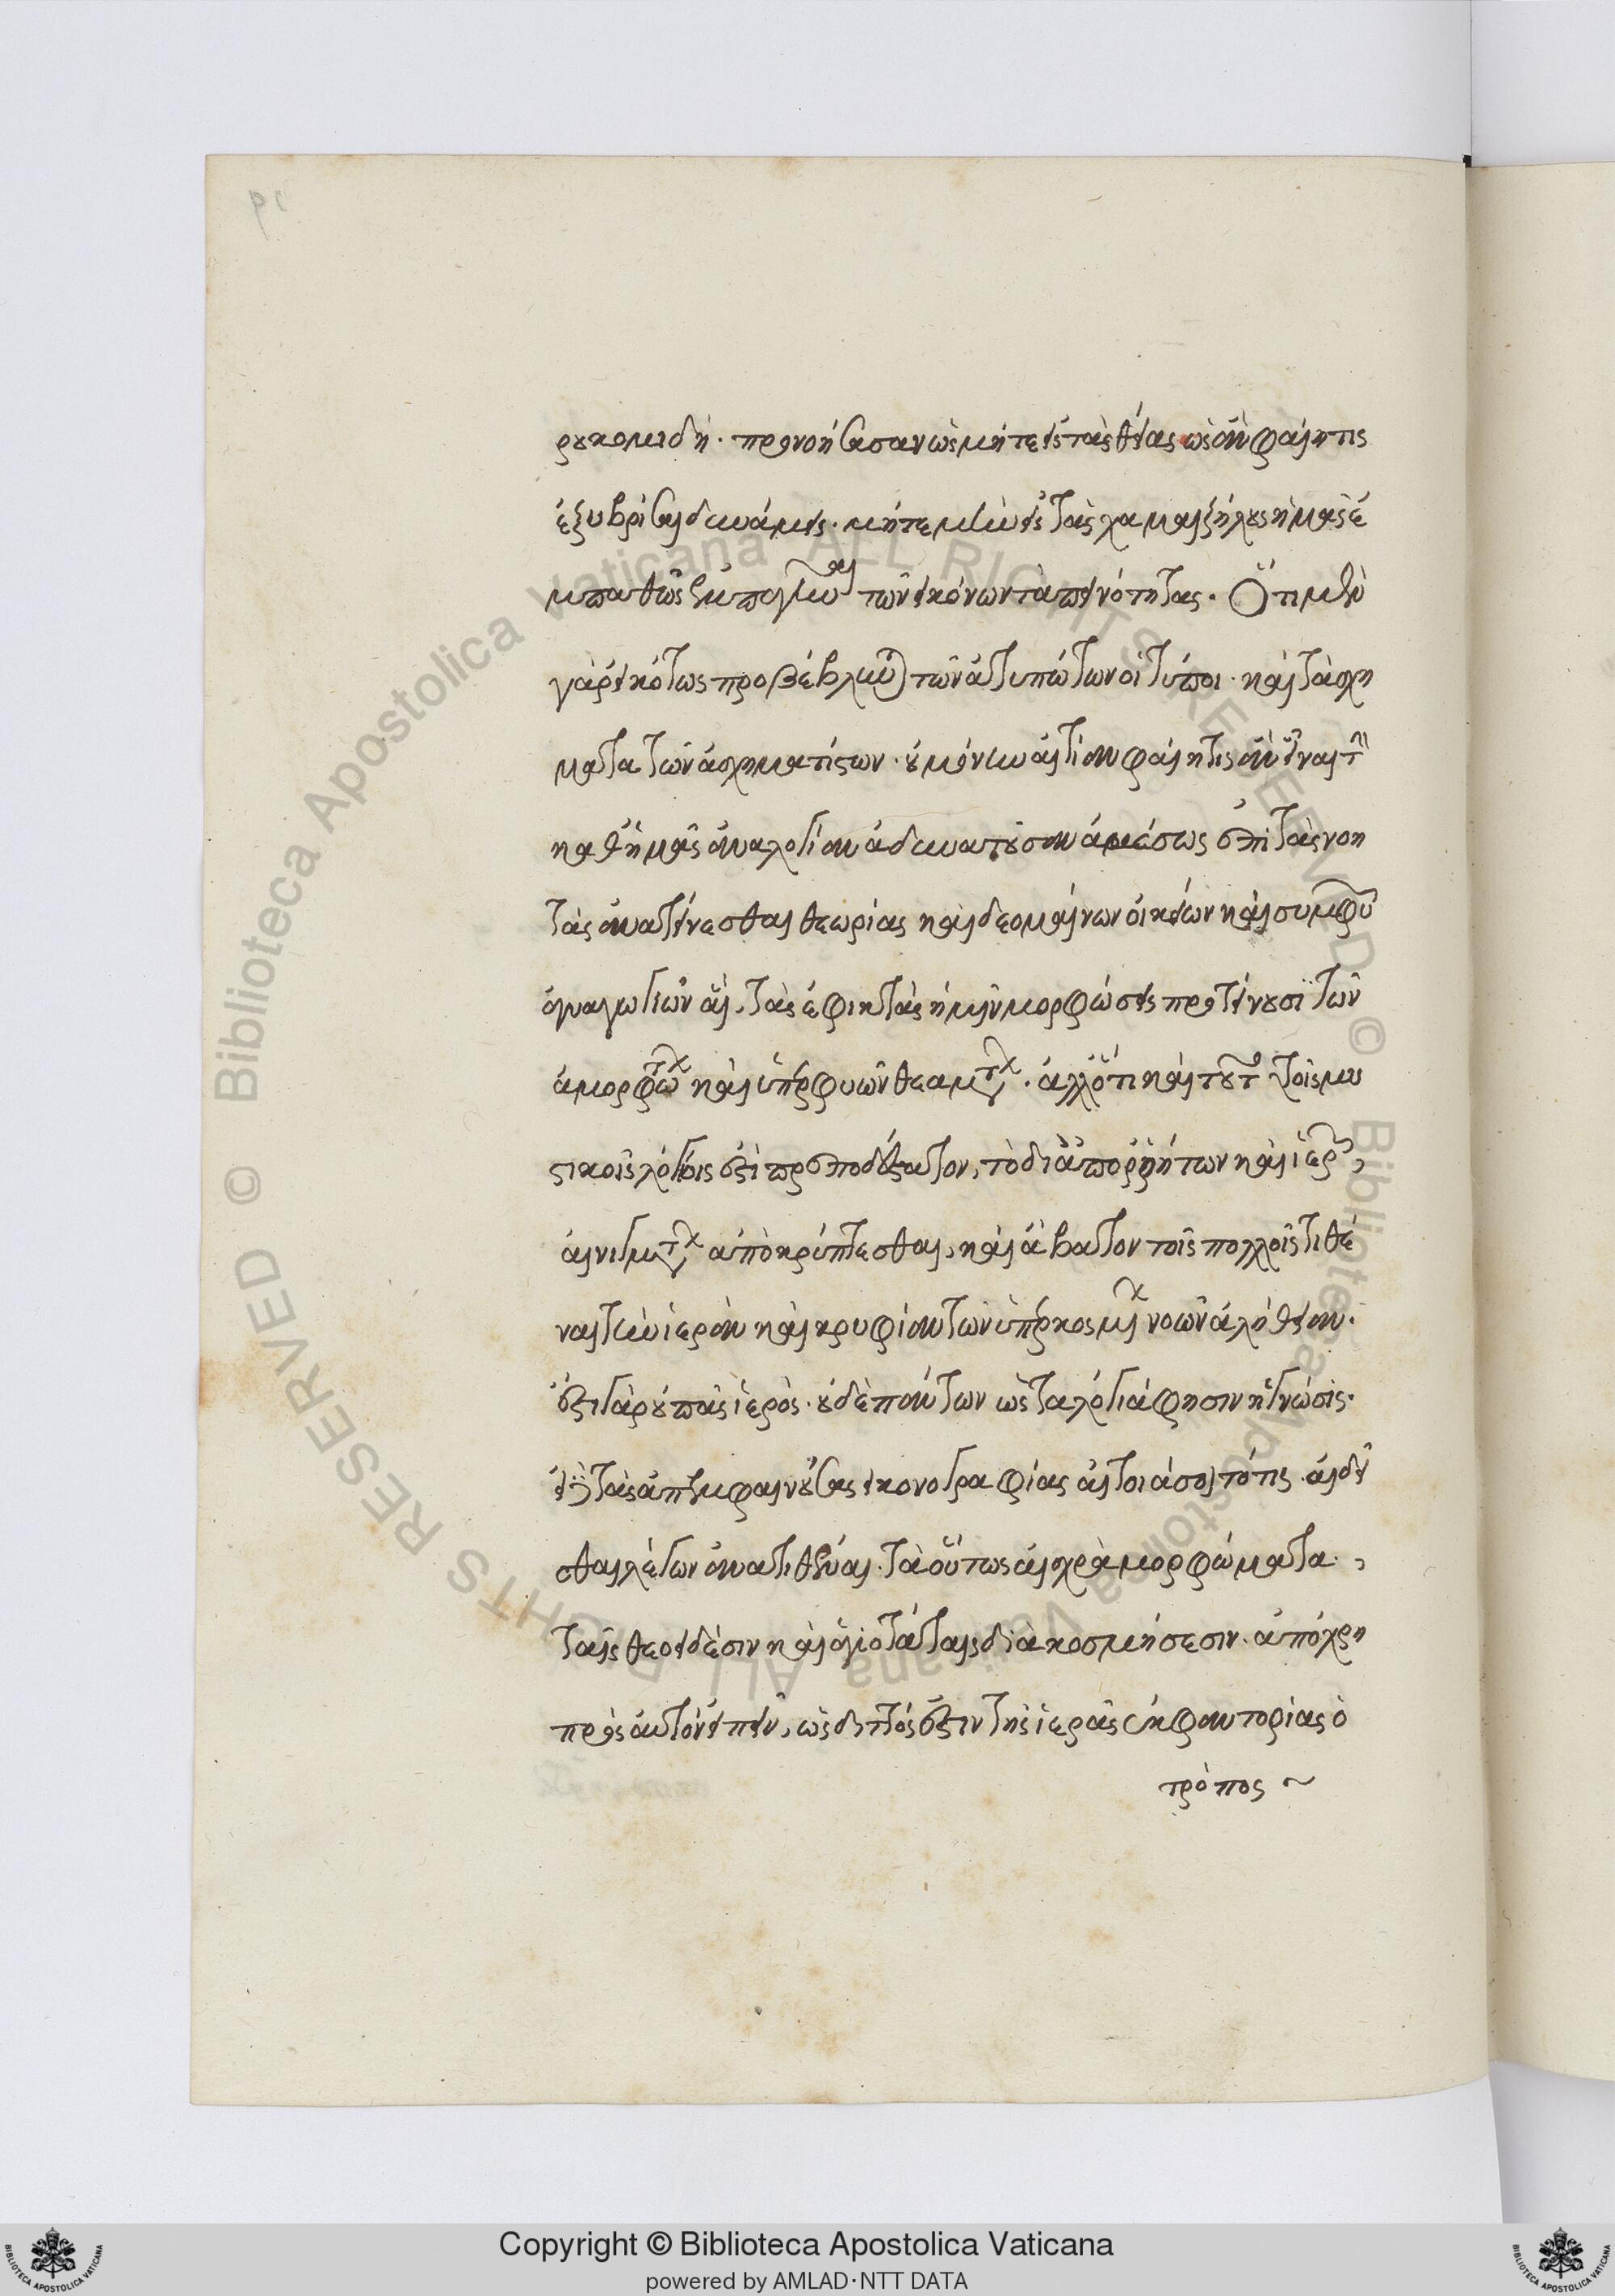 ρου κομιδῇ· προνοήσασαν ὡς μήτε εἰς τὰς θείας ὡς ἂν φαίη τις
ἐξυβρίσαι δυνάμεις· μήτε μὴν εἰς τὰς χαμαιζήλους ἡμᾶς ἐ
μπαθῶς ἐμπαγῆναι τῶν εἰκόνων ταπεινότητας. Ὅτι μὲν
γὰρ εἰκότως προβέβληνται τῶν ἀτυπώτων οἱ τύποι· καὶ τὰ σχή
ματα τῶν ἀσχηματίστων· οὐ μόνην αἰτίαν φαίη τις ἂν εἶναι τὴν
καθ' ἡμᾶς ἀναλογίαν ἀδυνατοῦσαν ἀμέσως ἐπὶ τὰς νοη
τὰς ἀνατείνεσθαι θεωρίας καὶ δεομένων οἰκείων καὶ συμφυῶν
ἀναγωγιῶν αἳ, τὰς ἐφικτὰς ἡμῖν μορφώσεις προτείνουσι τῶν
ἀμορφώτων καὶ ὑπερφυῶν θεαμάτων. ἀλλ' ὅτι καὶ τοῦτο τοῖς μυ
στικοῖς λόγοις ἐστὶ πρεπωδέστατον, τὸ δι' ἀπορρήτων καὶ ἱερῶν,
αἰνιγμάτων ἀποκρύπτεσθαι, καὶ ἄβατον τοῖς πολλοῖς τιθέ
ναι τὴν ἱερὰν καὶ κρυφίαν τῶν ὑπερκοσμίων νοῶν ἀλήθειαν.
ἔστι γὰρ οὐ πᾶς ἱερός· οὐδὲ πάντων ὡς τὰ λόγιά φησιν ἡ γνῶσις.
εἰ δὲ τὰς ἀπεμφαινούσας εἰκονογραφίας αἰτιάσοιτό τις· αἰδεῖ
σθαι λέγων ἀνατιθέναι· τὰ οὕτως αἰσχρὰ μορφώματα·,
ταῖς θεοειδέσιν καὶ ἁγιοτάταις διακοσμήσεσιν· ἀπόχρη
πρὸς αὐτὸν εἰπεῖν, ὡς διττός ἐστιν τῆς ἱερᾶς ἐκφαντορίας ὁ
τρόπος ~
Copyright © Biblioteca Apostolica Vaticana
powered by AMLAD·NTT DATA